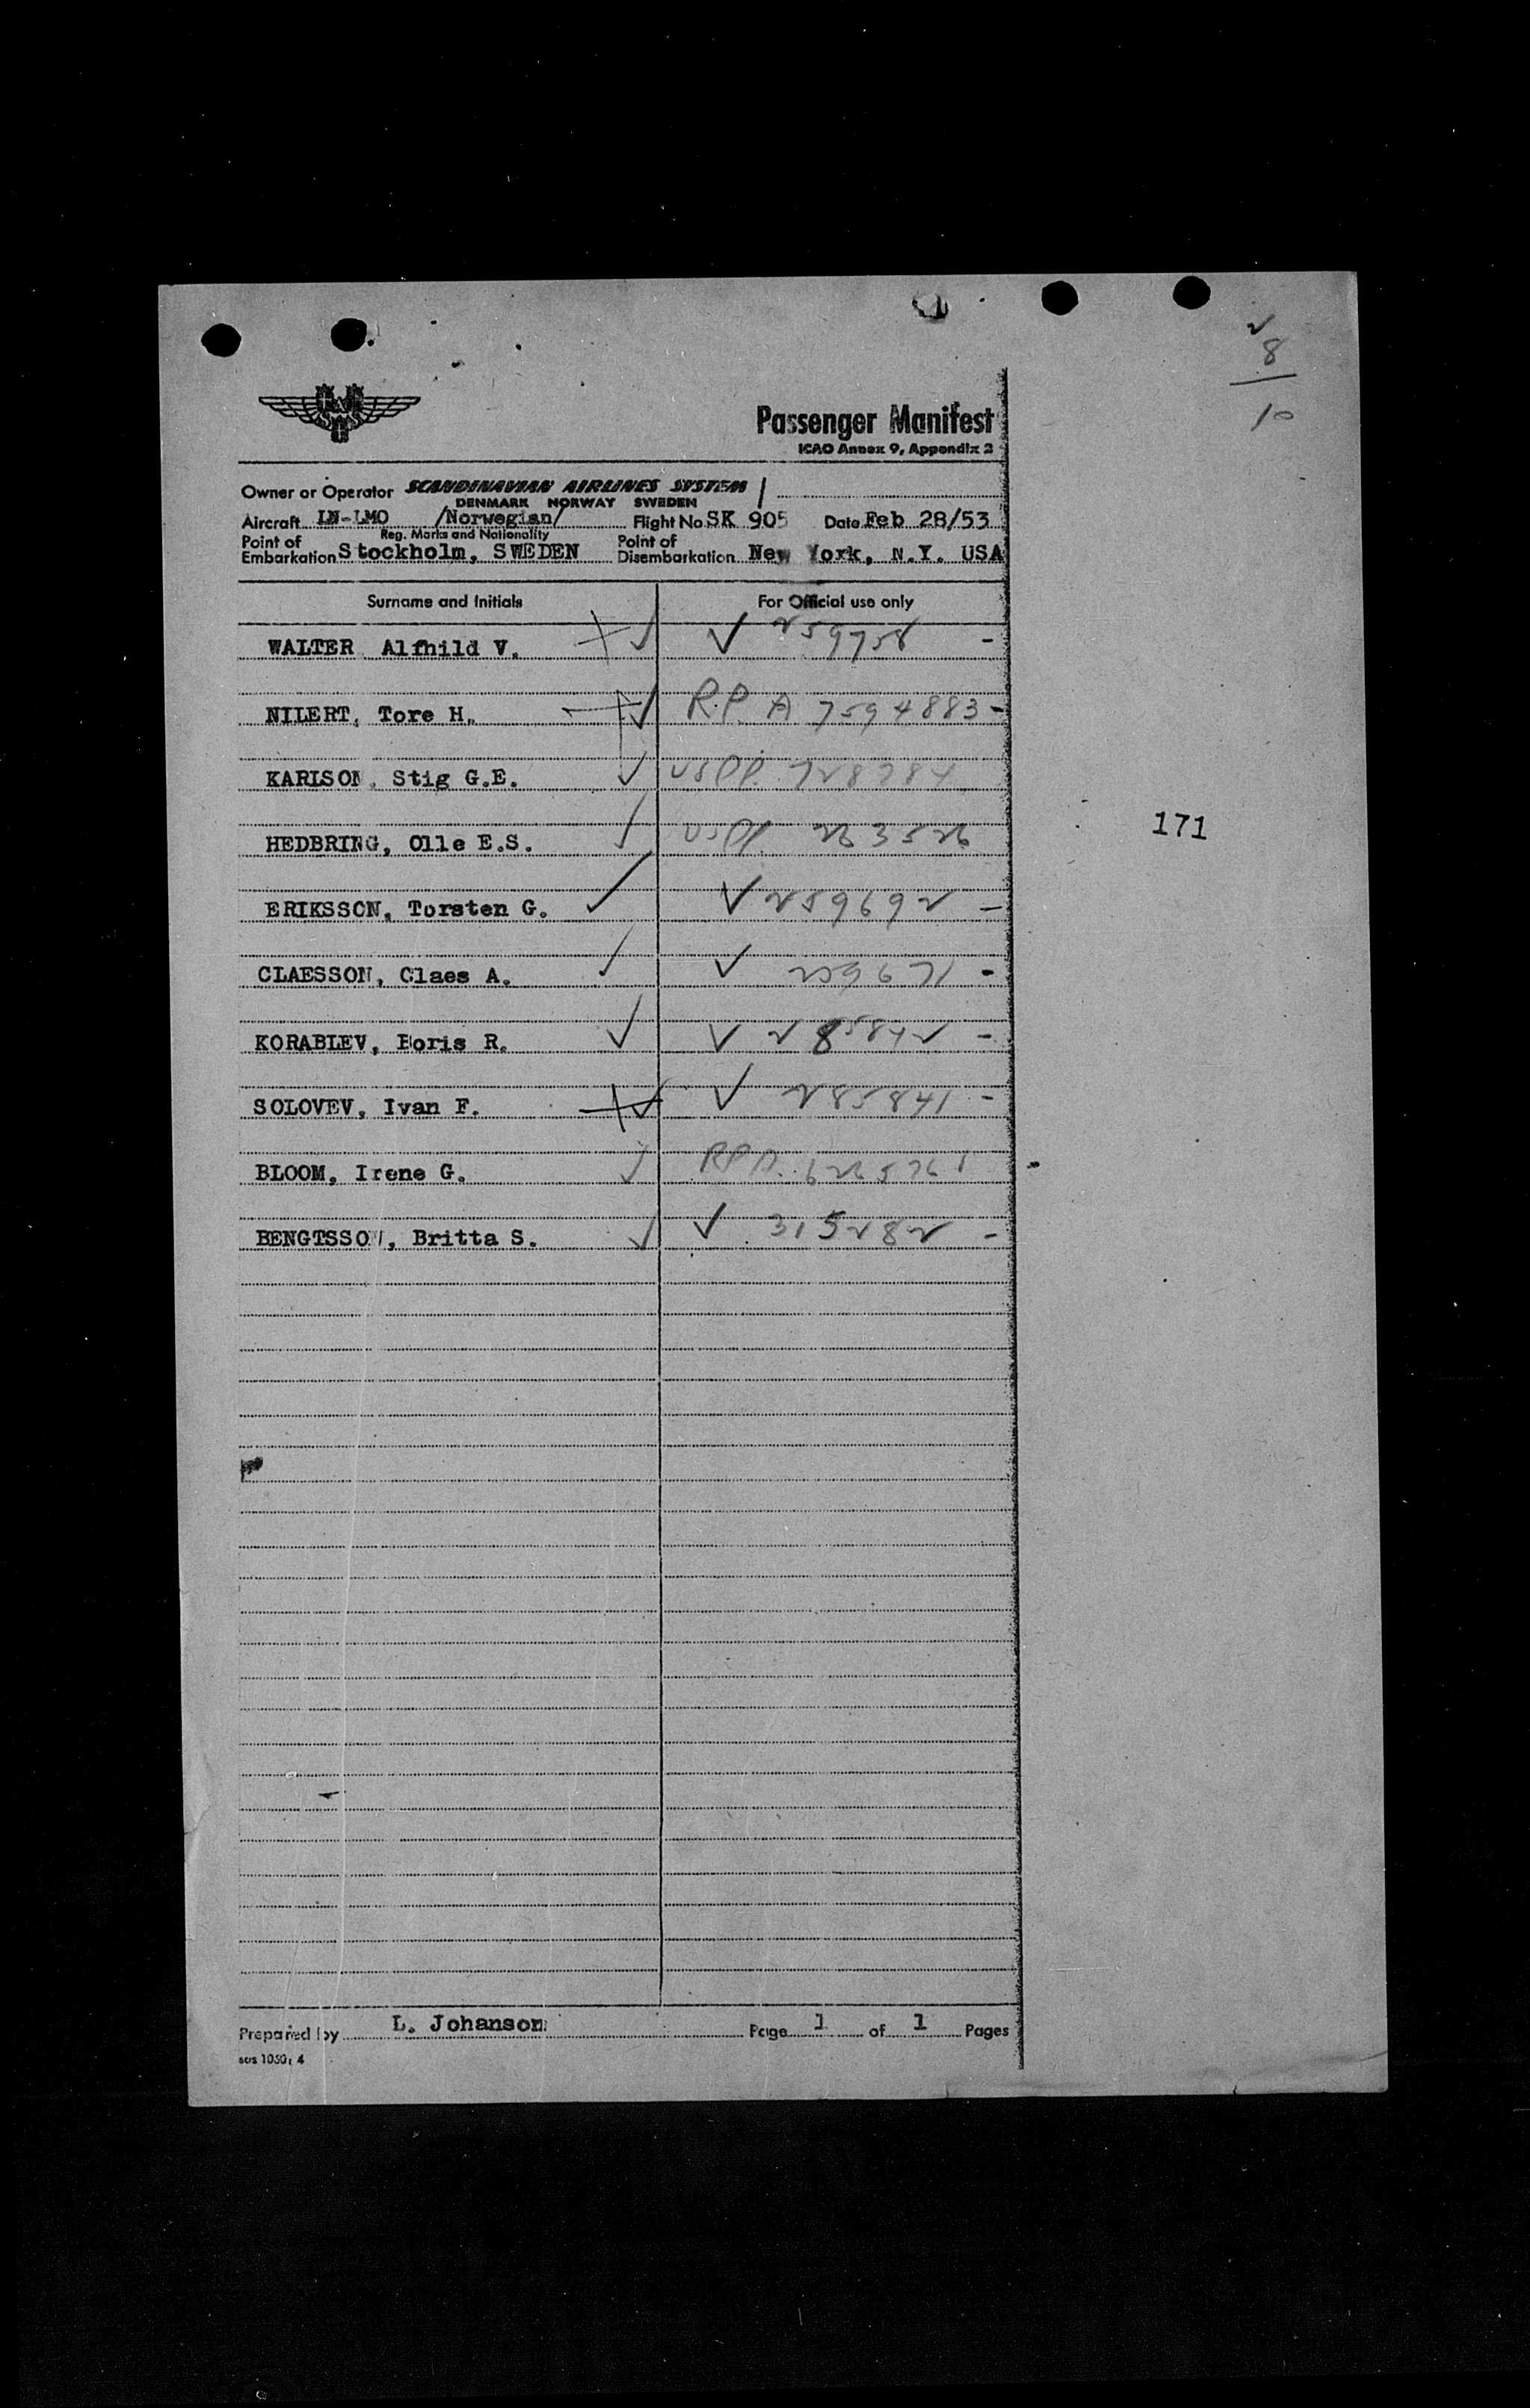 2
8
10
Passenger Manifest
ICAO Annex 9, Appendix 2
Owner or Operator SCANDINAVIAN AIRLINES SYSTEM
DENMARK NORWAY SWEDEN
Aircraft LN-LMO /Norwegian/ Flight No. SK 905 Date Feb 28/53
Reg. Marks and Nationality
Point of Embarkation Stockholm, SWEDEN Point of Disembarkation New York, N.Y. USA
Surname and Initials For Official use only
WALTER Alfhild V. ✓ ✓ 259758 -
NILERT, Tore H. ✓ R.P. A 7594883 -
KARLSON, Stig G.E. ✓ USPP.
HEDBRING, Olle E.S. ✓ USPP. 263526
171
ERIKSSON, Torsten G. ✓ ✓ 259692 -
CLAESSON, Claes A. ✓ ✓ 259671 -
KORABLEV, Boris R. ✓ ✓ 285842 -
SOLOVEV, Ivan F. ✓ ✓ 285841 -
BLOOM, Irene G. ✓
BENGTSSON, Britta S. ✓ ✓ 315282 -
Prepared by L. Johanson Page 1 of 1 Pages